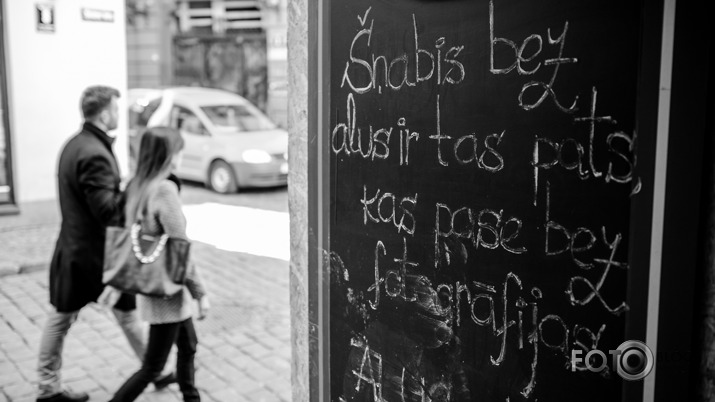 Šņabis bez
alus ir tas
pats,
kas paņašē bez
fotogrāfijas
FOTO